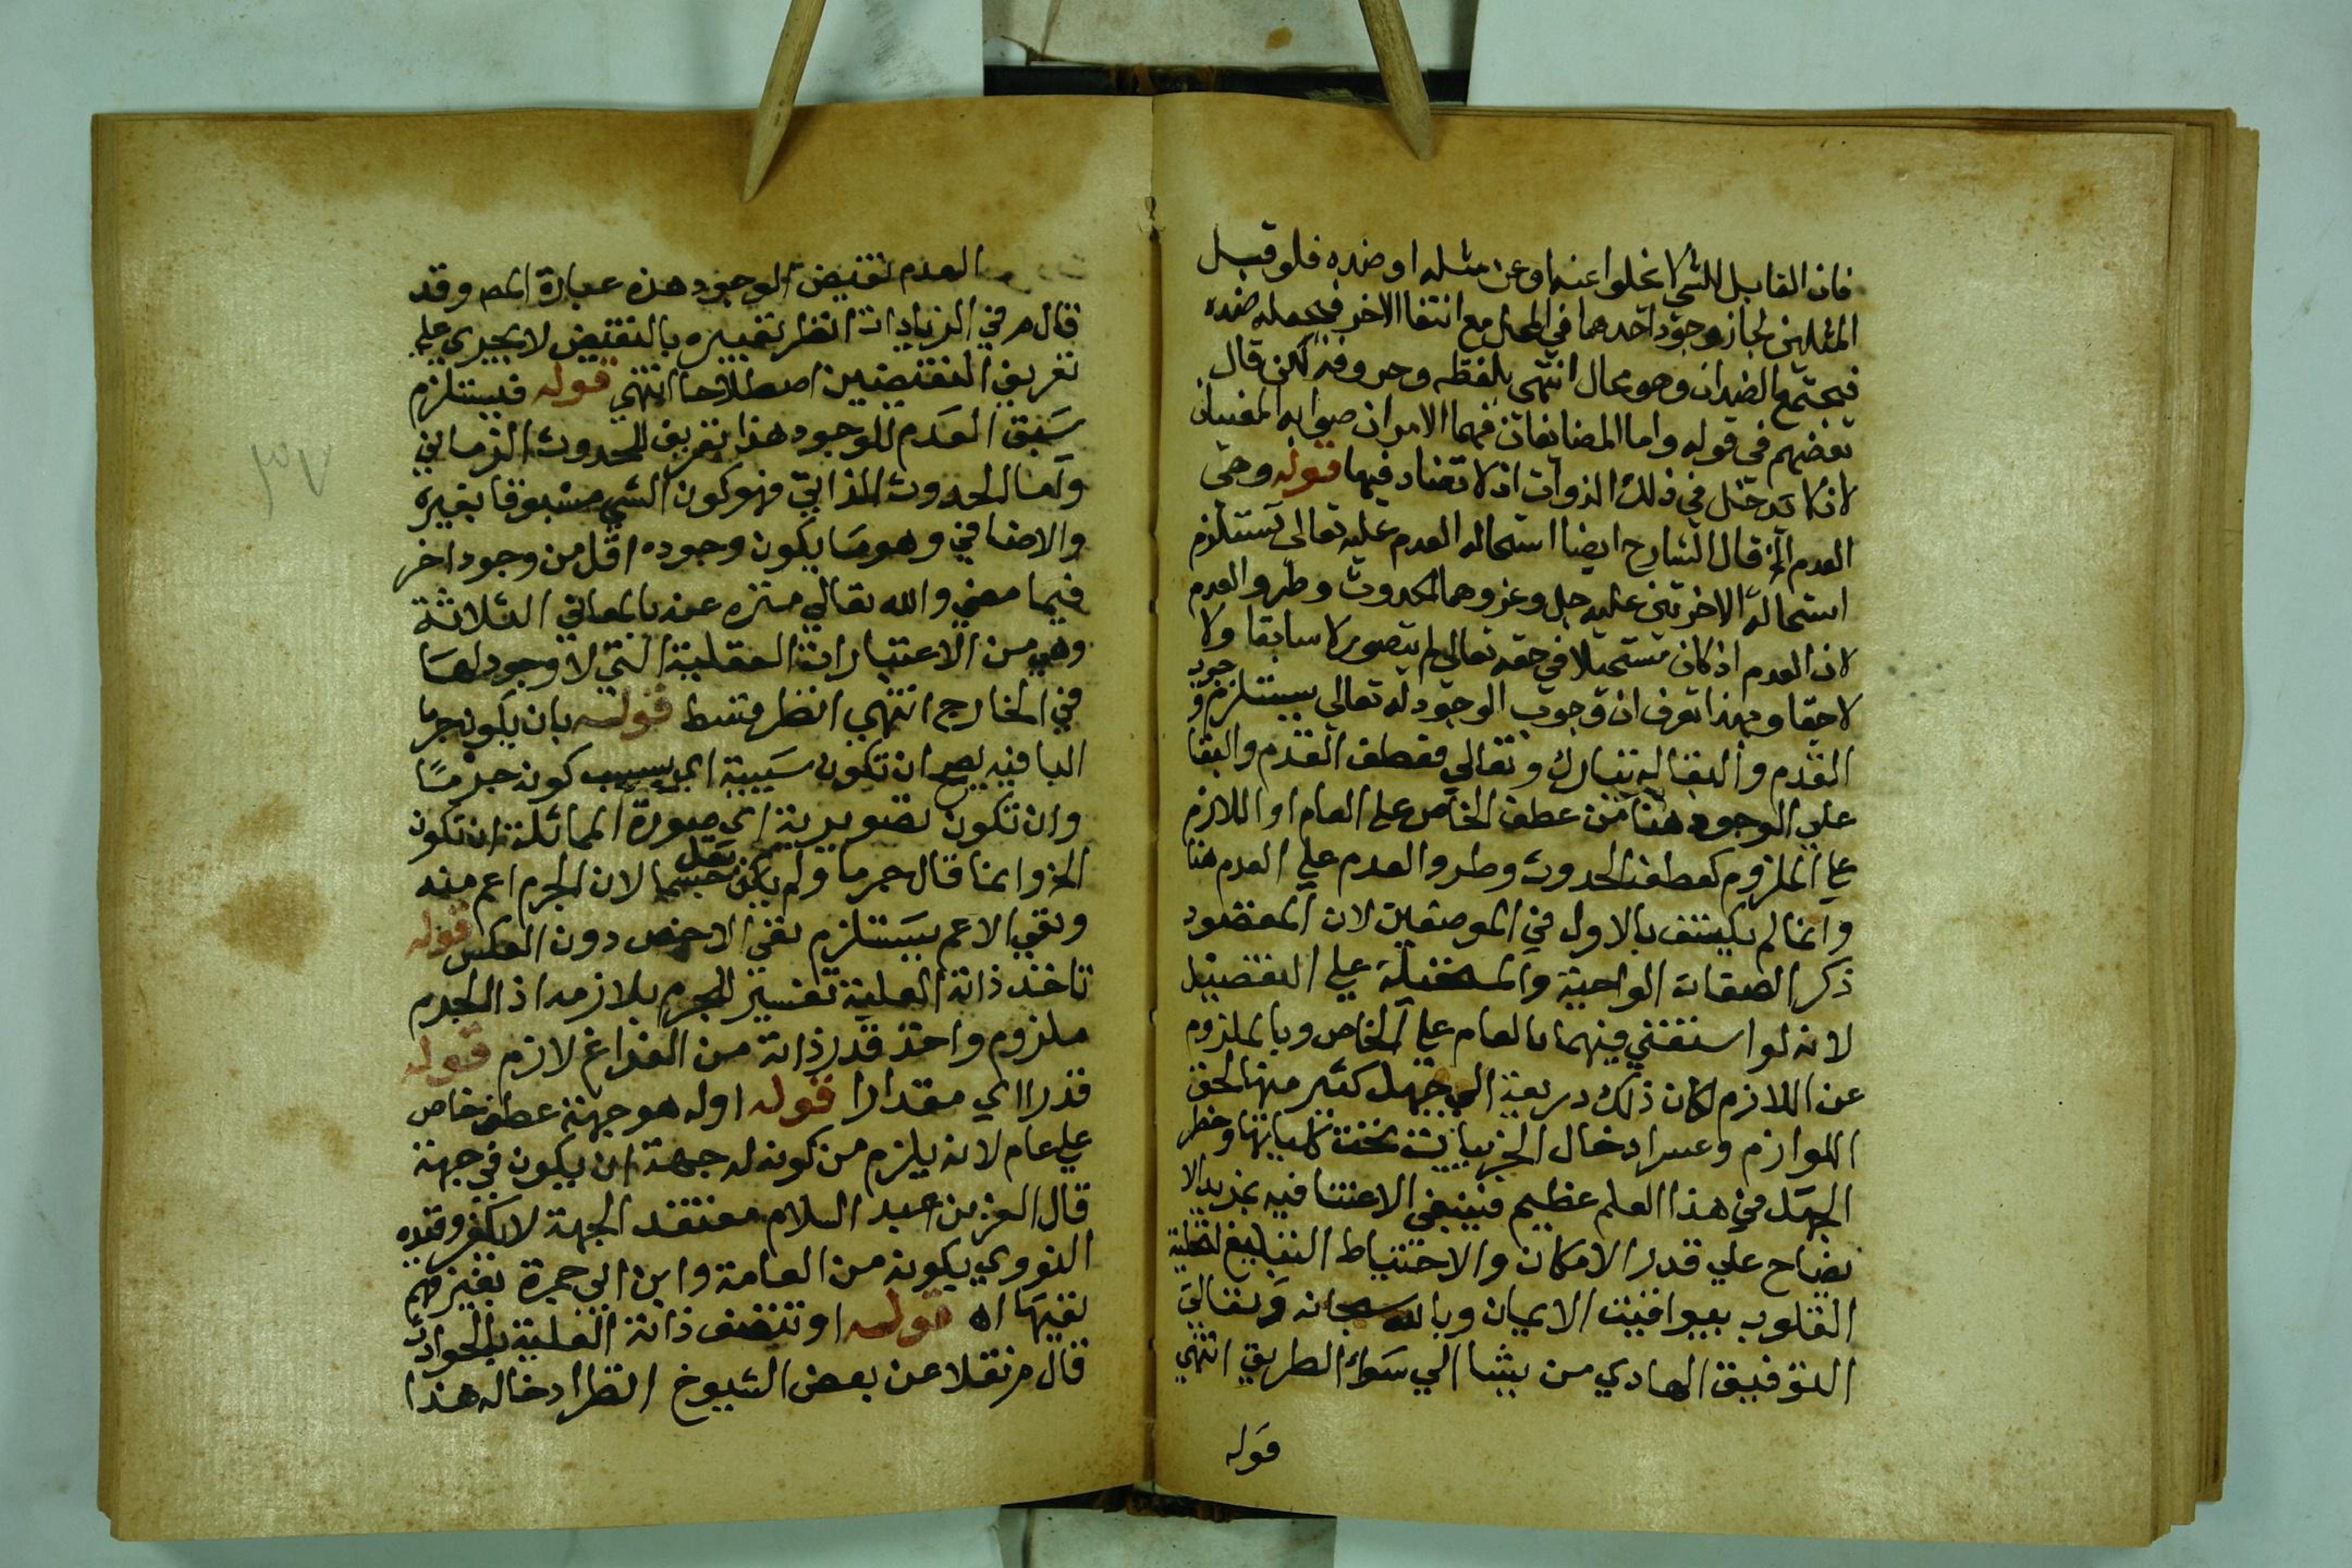 فان القابل للشي لا يخلوا عنه او عن مثله او ضده فلو قبل
المثلين لجاز وجود احدهما في المحل مع انتفا الاخر فيخلفه ضده
فيجتمع الضدان وهو محال انتهى بلفظه وحروفه لكن قال
بعضهم في قوله واما المضايفان فهما الامران صوابه المعنيان
لان لا تدخل في ذلك الذوات اذ لا تضاد فيها قوله وهي
العدم الخ قال الشارح ايضا استحالة العدم عليه تعالى تستلزم
استحالة الاخرتين عليه جل وعز وهما الحدوث وطرو العدم
لان العدم اذ كان مستحيلا في حقه تعالى لم يتصور لا سابقا ولا
لاحقا وبهذا تعرف ان وجوب الوجود له تعالى يستلزم وجوب
القدم والبقا له تبارك وتعالي فعطف القدم والبقا
علي الوجود هنا من عطف الخاص علي العام او اللازم
علي الملزوم كعطف الحدوث وطرو العدم علي العدم هنا
وانما لم يكتف بالاول في الموضعين لان المقصود
ذكر الصفات الواجبة والمستحيلة علي التفصيل
لانه لو استغني فيهما بالعام علي الخاص وبالملزوم
عن اللازم لكان ذلك ذريعة الي جهل كثير منها لخفى
اللوازم وعسر ادخال الجزييات تحت كلياتها وخطر
الجهل في هذا العلم عظيم فينبغي الاعتنا فيه بمزيد الا
يضاح علي قدر الامكان والاحتياط البليغ لتحلية
القلوب بيواقيت الايمان وبالله سبحانه وتعالي
التوفيق الهادي من يشا الي سواء الطريق انتهي
قوله
العدم نقيض الوجود هذه عبارة المص وقد
قال م ر في الزيادات انظر تعبيره بالنقيض لا يجري علي
تعريف النقيضين اصطلاحا انتهي قوله فيستلزم
سبق العدم للوجود هذا تعريف للحدوث الزماني
واما الحدوث الذاتي فهو كون الشي مسبوقا بغيره
والاضافي وهو ما يكون وجوده اقل من وجود اخر
فيما مضي والله تعالي منزه عنه بالمعاني الثلاثة
وهي من الاعتبارات العقلية التي لا وجود لها
في الخارج انتهي انظر قوله بان يكون جرما
البا فيه يصح ان تكون سببية اي بسبب كونه جرمًا
وان تكون تصويرية اي صورة المماثلة ان تكون
الخ وانما قال جرما ولم يقل جسما لان الجرم اعم منه
ونفي الاعم يستلزم نفي الاخص دون العكس قوله
تاخذ ذاته العلية تفسير للجرم بلازمه اذ الجرم
ملزوم واخذ قدر ذاته من الفراغ لازم قوله
قدرا اي مقدارا قوله اوله هو جهة عطف خاص
علي عام لانه يلزم من كونه له جهة ان يكون في جهة
قال العز بن عبد السلام معتقد الجهة لا يكفر وقيده
النووي بكونه من العامة وابن ابي جمرة بعسر فهم
نفيها اه قوله او تتصف ذاته العلية بالحوادث
قال م ر نقلا عن بعض الشيوخ انظر ادخاله هذا